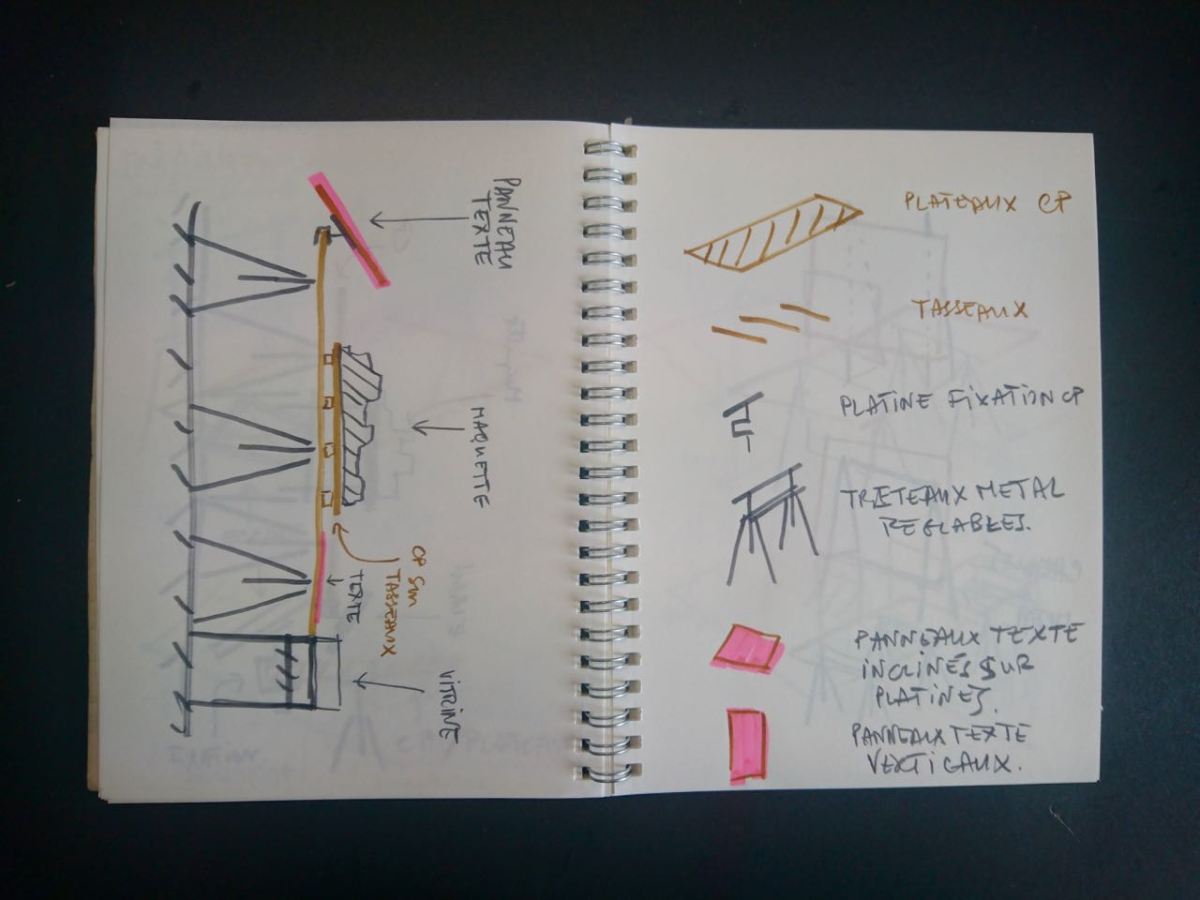 PANNEAU
TEXTE
MAQUETTE
CP SUR
TASSEAUX
TEXTE
VITRINE
PLATEAUX CP
TASSEAUX
PLATINE FIXATION CP
TRETEAUX METAL
REGLABLES.
PANNEAUX TEXTE
INCLINÉS SUR
PLATINES.
PANNEAUX TEXTE
VERTICAUX.